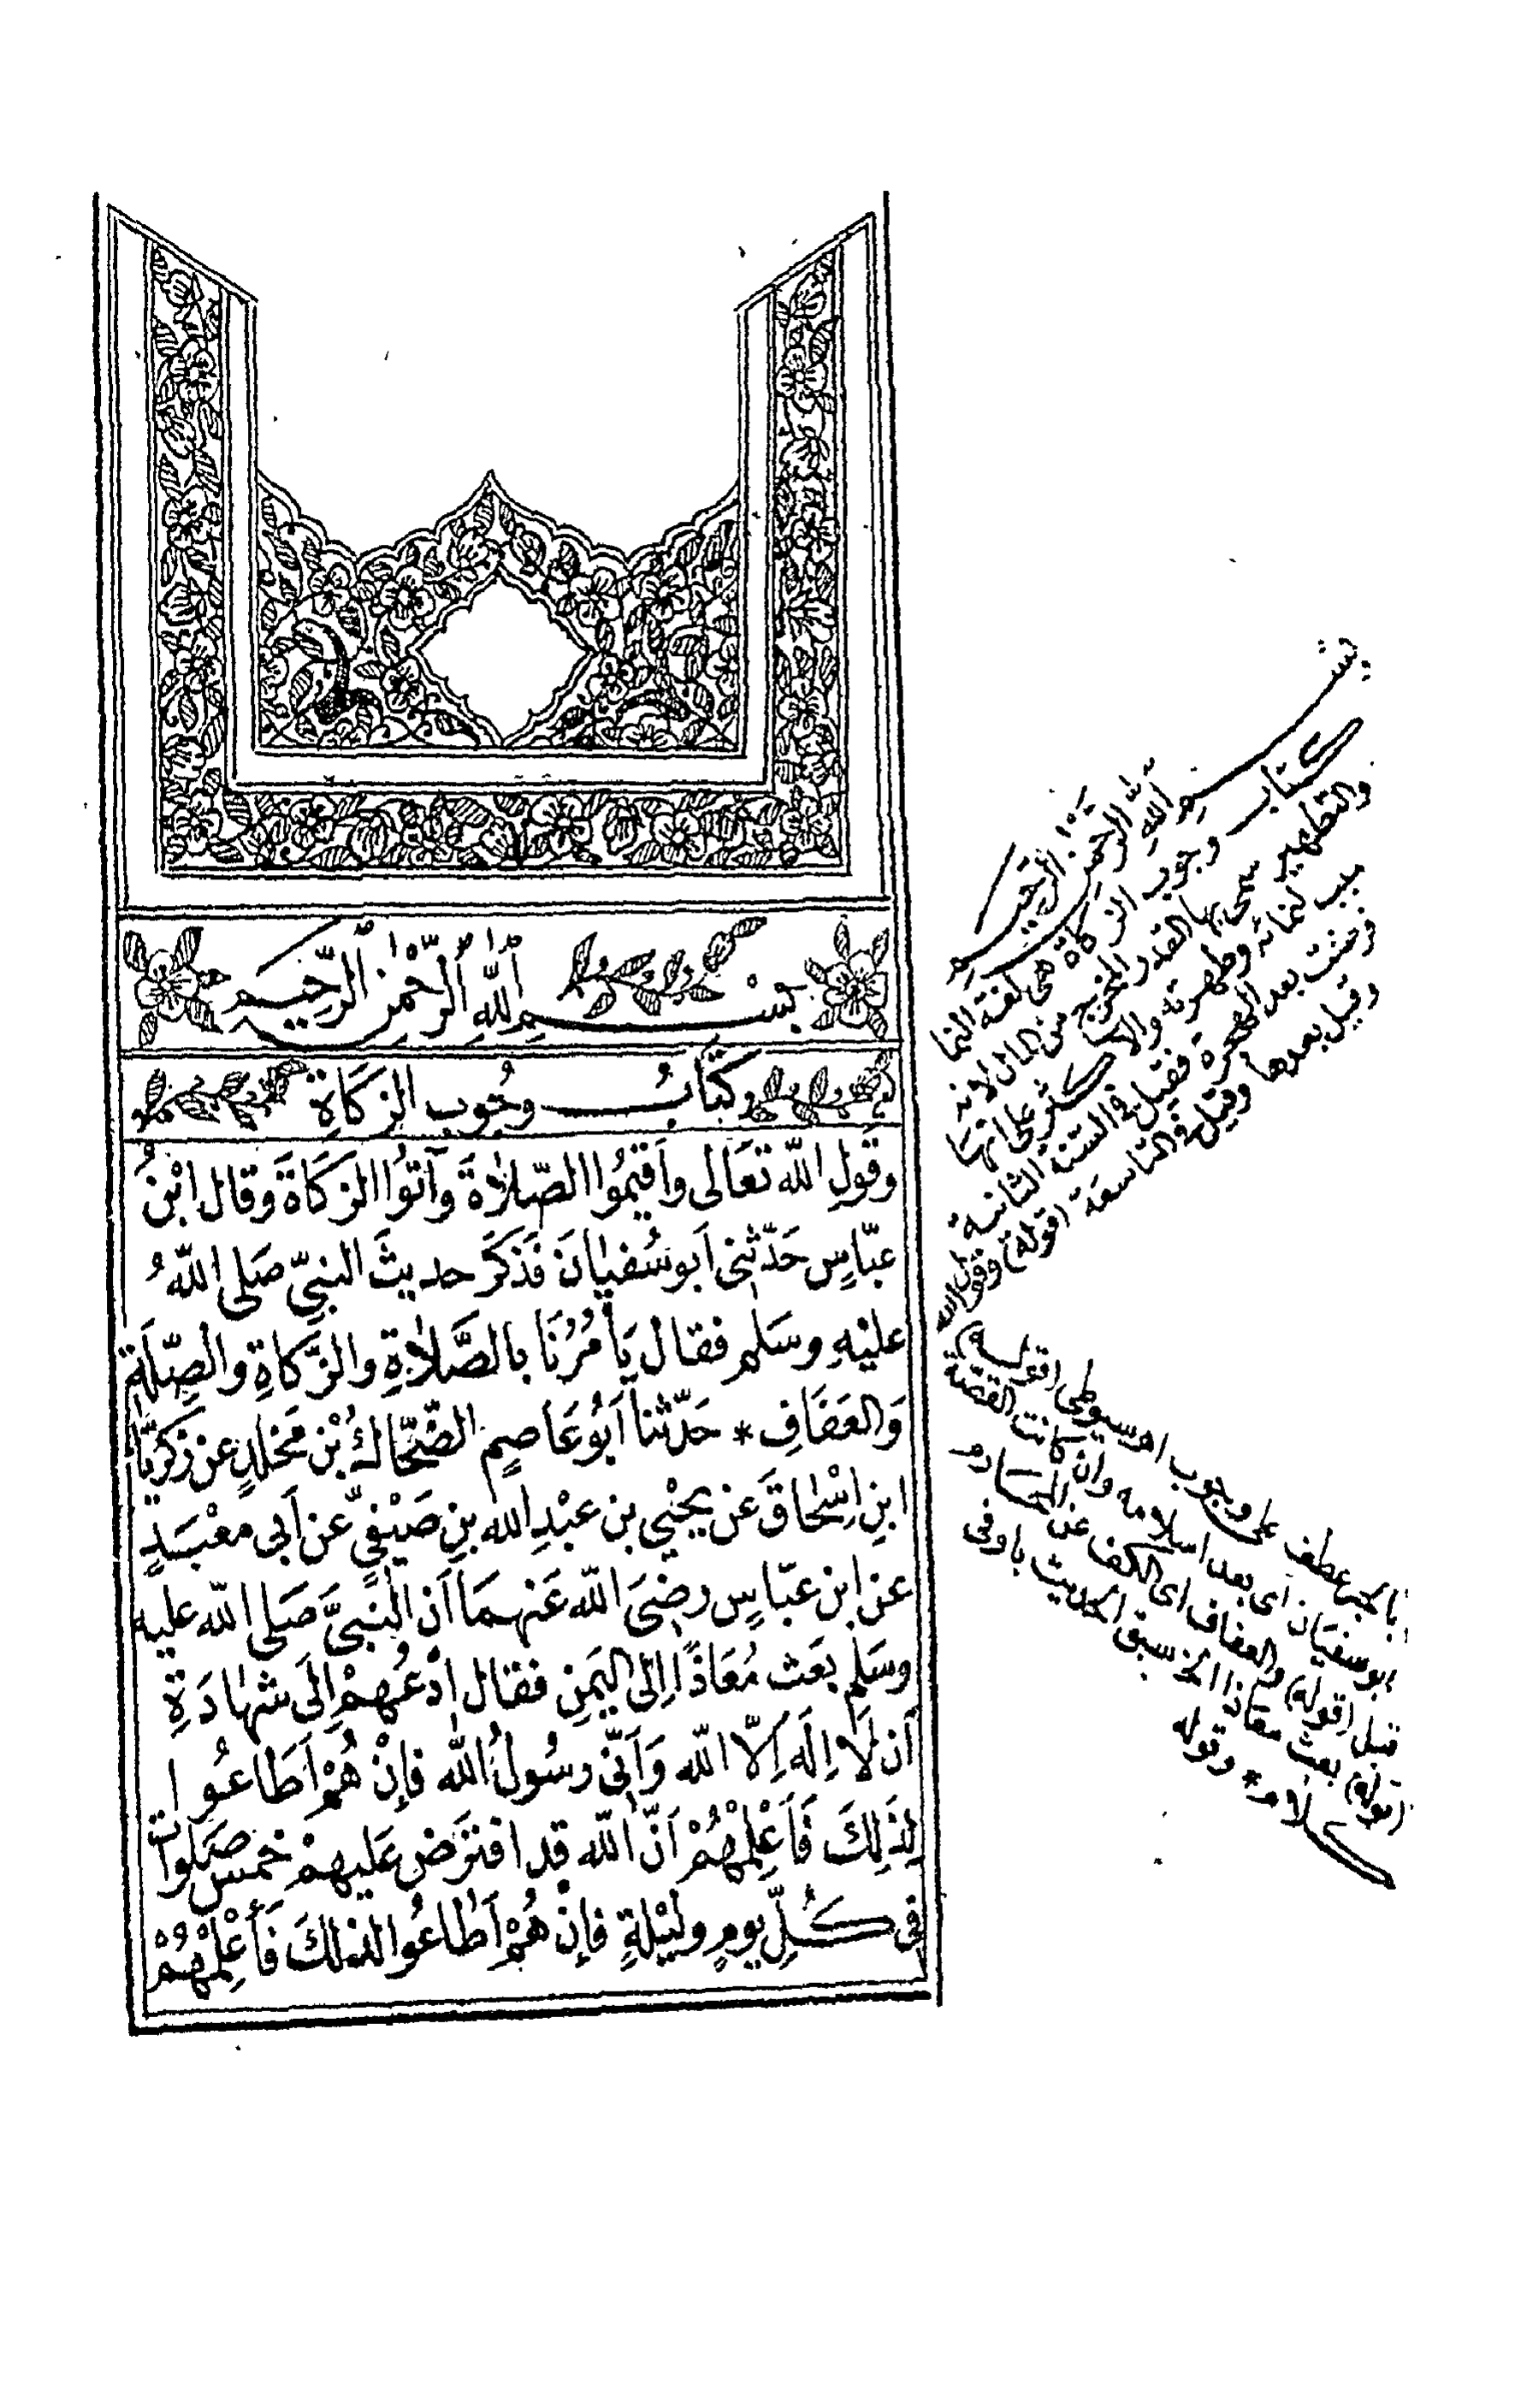 بِسْمِ اللّٰهِ الرَّحْمٰنِ الرَّحِيمِ
كِتَابُ وُجُوبِ الزَّكَاةِ
وَقَوْلِ اللّٰه تَعَالى وأَقيمُوا الصّلاٰةَ وآتُوا الزَكَاةَ وَقال ابْنُ
عبّاسٍ حَدّثنى اَبو سُفيٰانَ فَذَكَرَ حديثَ النبيّ صَلى اللّهُ
عليْهِ وسَلم فقال يَأمُرُنَا بالصَّلاٰةِ والزَّكاةِ والصِّلَةِ
وَالعَفَافِ * حَدّثنا اَبُو عَاصمٍ الضّحّاكُ بْن مَخلدٍ عن زكَريّا
ابنِ اِسْحٰاقَ عَن يحيْى بن عبْدِ اللّه بنِ صَيْفيٍّ عن اَبى معْبَدٍ
عن ابن عبّاسٍ رضىَ اللّه عَنهمَا اَنّ النبيَّ صَلى اللّه عليه
وسَلم بعَث مُعَاذًا اِلى اليَمَنِ فقال ادْعُهمْ اِلَى شهٰادَةِ
اَن لَا اِلَه اِلّا اللّه وَاَنّى رسُولُ اللّه فإِنْ هُمْ اَطَاعُوا
لِذَلِكَ فَأَعْلِمْهُمْ اَنّ اللّه قد افترَض عَليهمْ خمس صَلوات
فى كُلّ يومٍ وليْلةٍ فإنْ هُمْ اَطاعُوا لذلكَ فَأَعْلِمْهُمْ
بسم اللّه الرحمن الرحيم
كتاب وجوب الزكاة هى لغة النما
والتطهير سمى بها القدر المخرج من المال لانه
سبب لنمائه وطهرته والاكثر على انها
فرضت بعد الهجرة فقيل فى السنة الثانية
وقيل بعدها وقيل فى التاسعة (قوله) وقول اللّه
بالجر عطف على وجوب اه سيوطى (قوله)
ابو سفيان اى بعد اسلامه وان كانت القصة
قبل (قوله) والعفاف اى الكف عن المحارم
(قوله) بعث معاذا الخ سبق الحديث باوفى
كلام * وقوله